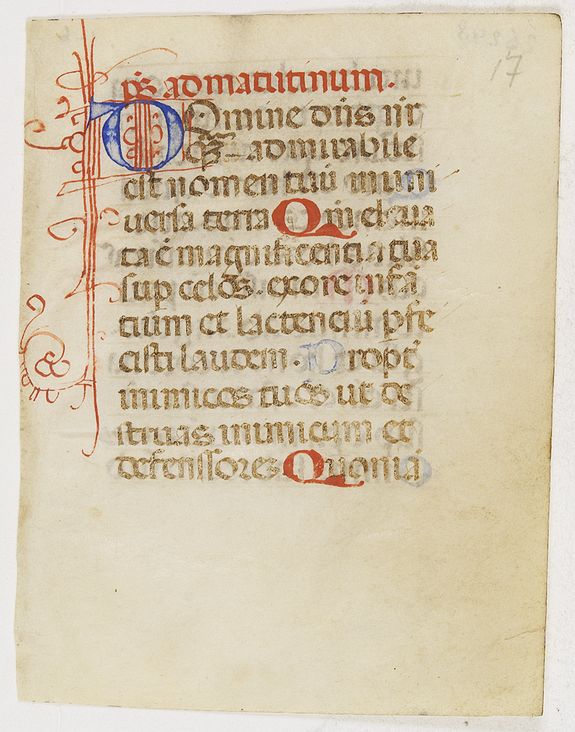 17
ps̄ ad matutinum.
Domine dn̄s nr̄
qm̄ admirabile
est nomen tuū in uni
uersa terra Qm̄ eleua
ta ē magnificentia tua
sup celos. ex ore infā
tium et lactenciū pfe
cisti laudem. Propt
inimicos tuos ut de
struas inimicum et
defenssores Quoniā